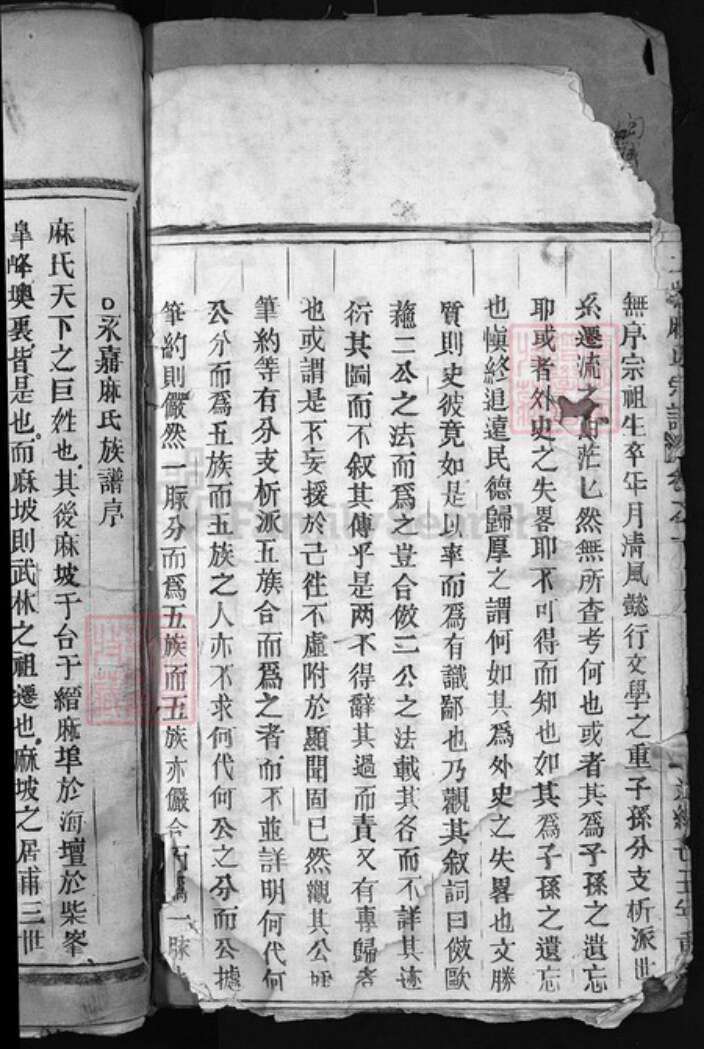 無序宗祖生卒年月清風懿行文學之重子孫分支析派世
系遷流茫匕然無所查考何也或者其爲子孫之遺忘
耶或者外史之失畧耶不可得而知也如其爲子孫之遺忘
也愼終追遠民德歸厚之謂何如其爲外史之失畧也文勝
質則史彼竟如是以率而爲有識鄙也乃觀其叙詞曰倣歐
蘓二公之法而爲之豈合倣二公之法載其名而不詳其迹
衍其圖而不叙其傳乎是两不得辭其過而責又有專歸者
也或謂是不妄援於己徃不虛附於顯聞固已然觀其公
筆約等有分支析派五族合而爲之者而不並詳明何代何
公分而爲五族而五族之人亦不求何代何公之分而公據
筆約則儼然一脉分而爲五族而五族亦儼合一脉
永嘉麻氏族譜序
麻氏天下之巨姓也其後麻坡于台于縉麻埠於海壇於柴峯
阜峰墺裏皆是也而麻坡則武林之祖遷也麻坡之居甫三世
FamilySearch